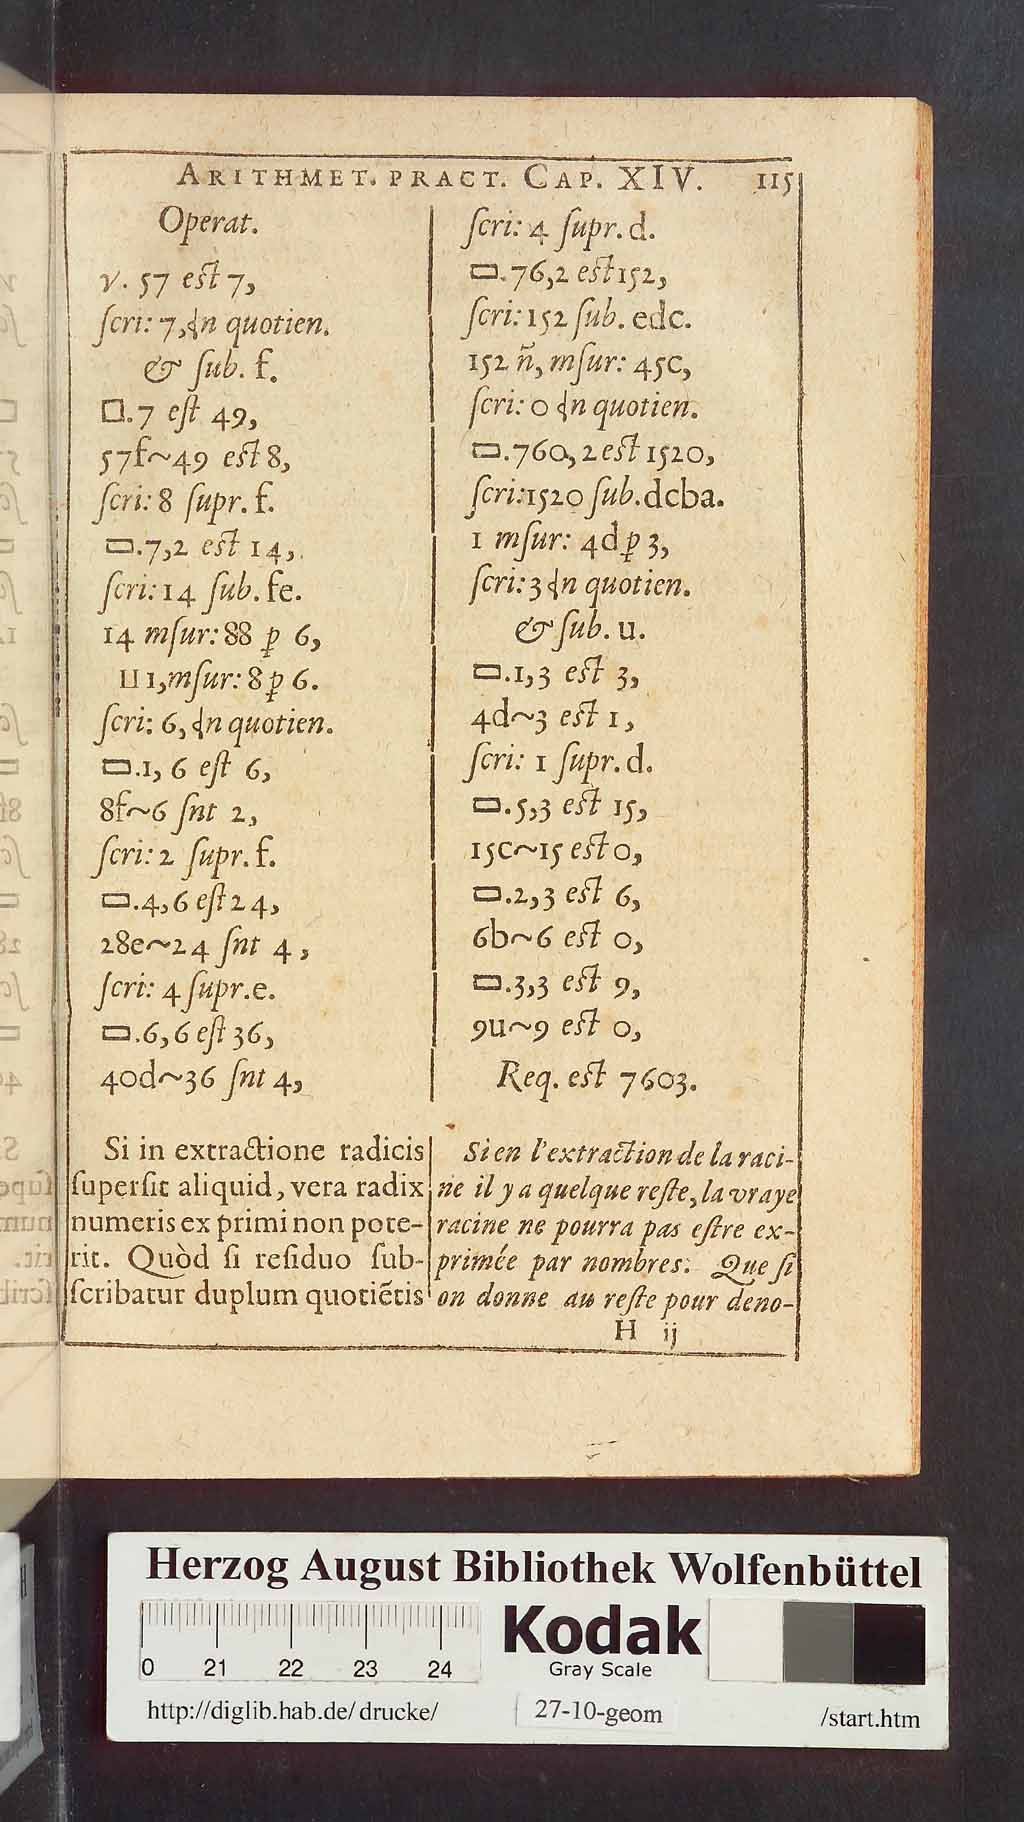 ARITHMET. PRACT. CAP. XIV. 115
Operat.
γ. 57 est 7,
ſcri: 7, ɖn quotien.
& ſub. f.
□.7 eſt 49,
57f~49 est 8,
ſcri: 8 ſupr. f.
▭.7,2 est 14,
ſcri: 14 ſub. fe.
14 mſur: 88 p̱ 6,
⊔ 1, mſur: 8 p̱ 6.
ſcri: 6, ɖn quotien.
▭.1, 6 eſt 6,
8f~6 ſnt 2,
ſcri: 2 ſupr. f.
▭.4,6 eſt 24,
28e~24 ſnt 4,
ſcri: 4 ſupr.e.
▭.6,6 eſt 36,
40d~36 ſnt 4,
ſcri: 4 ſupr. d.
▭.76,2 est 152,
ſcri: 152 ſub. edc.
152 ñ, mſur: 45c,
ſcri: 0 ɖn quotien.
▭.760,2 est 1520,
ſcri: 1520 ſub. dcba.
1 mſur: 4d p̱ 3,
ſcri: 3 ɖn quotien.
& ſub. u.
▭.1,3 est 3,
4d~3 est 1,
ſcri: 1 ſupr. d.
▭.5,3 est 15,
15c~15 est 0,
▭.2,3 est 6,
6b~6 est 0,
▭.3,3 est 9,
9u~9 est 0,
Req. est 7603.
Si in extractione radicis
ſuperſit aliquid, vera radix
numeris exprimi non pote-
rit. Quòd ſi reſiduo ſub-
ſcribatur duplum quotiẽtis
Si en l'extraction de la raci-
ne il y a quelque reſte, la vraye
racine ne pourra pas eſtre ex-
primée par nombres. Que ſi
on donne au reſte pour deno-
H ij
Herzog August Bibliothek Wolfenbüttel
0 21 22 23 24
Kodak
Gray Scale
http://diglib.hab.de/drucke/ 27-10-geom /start.htm